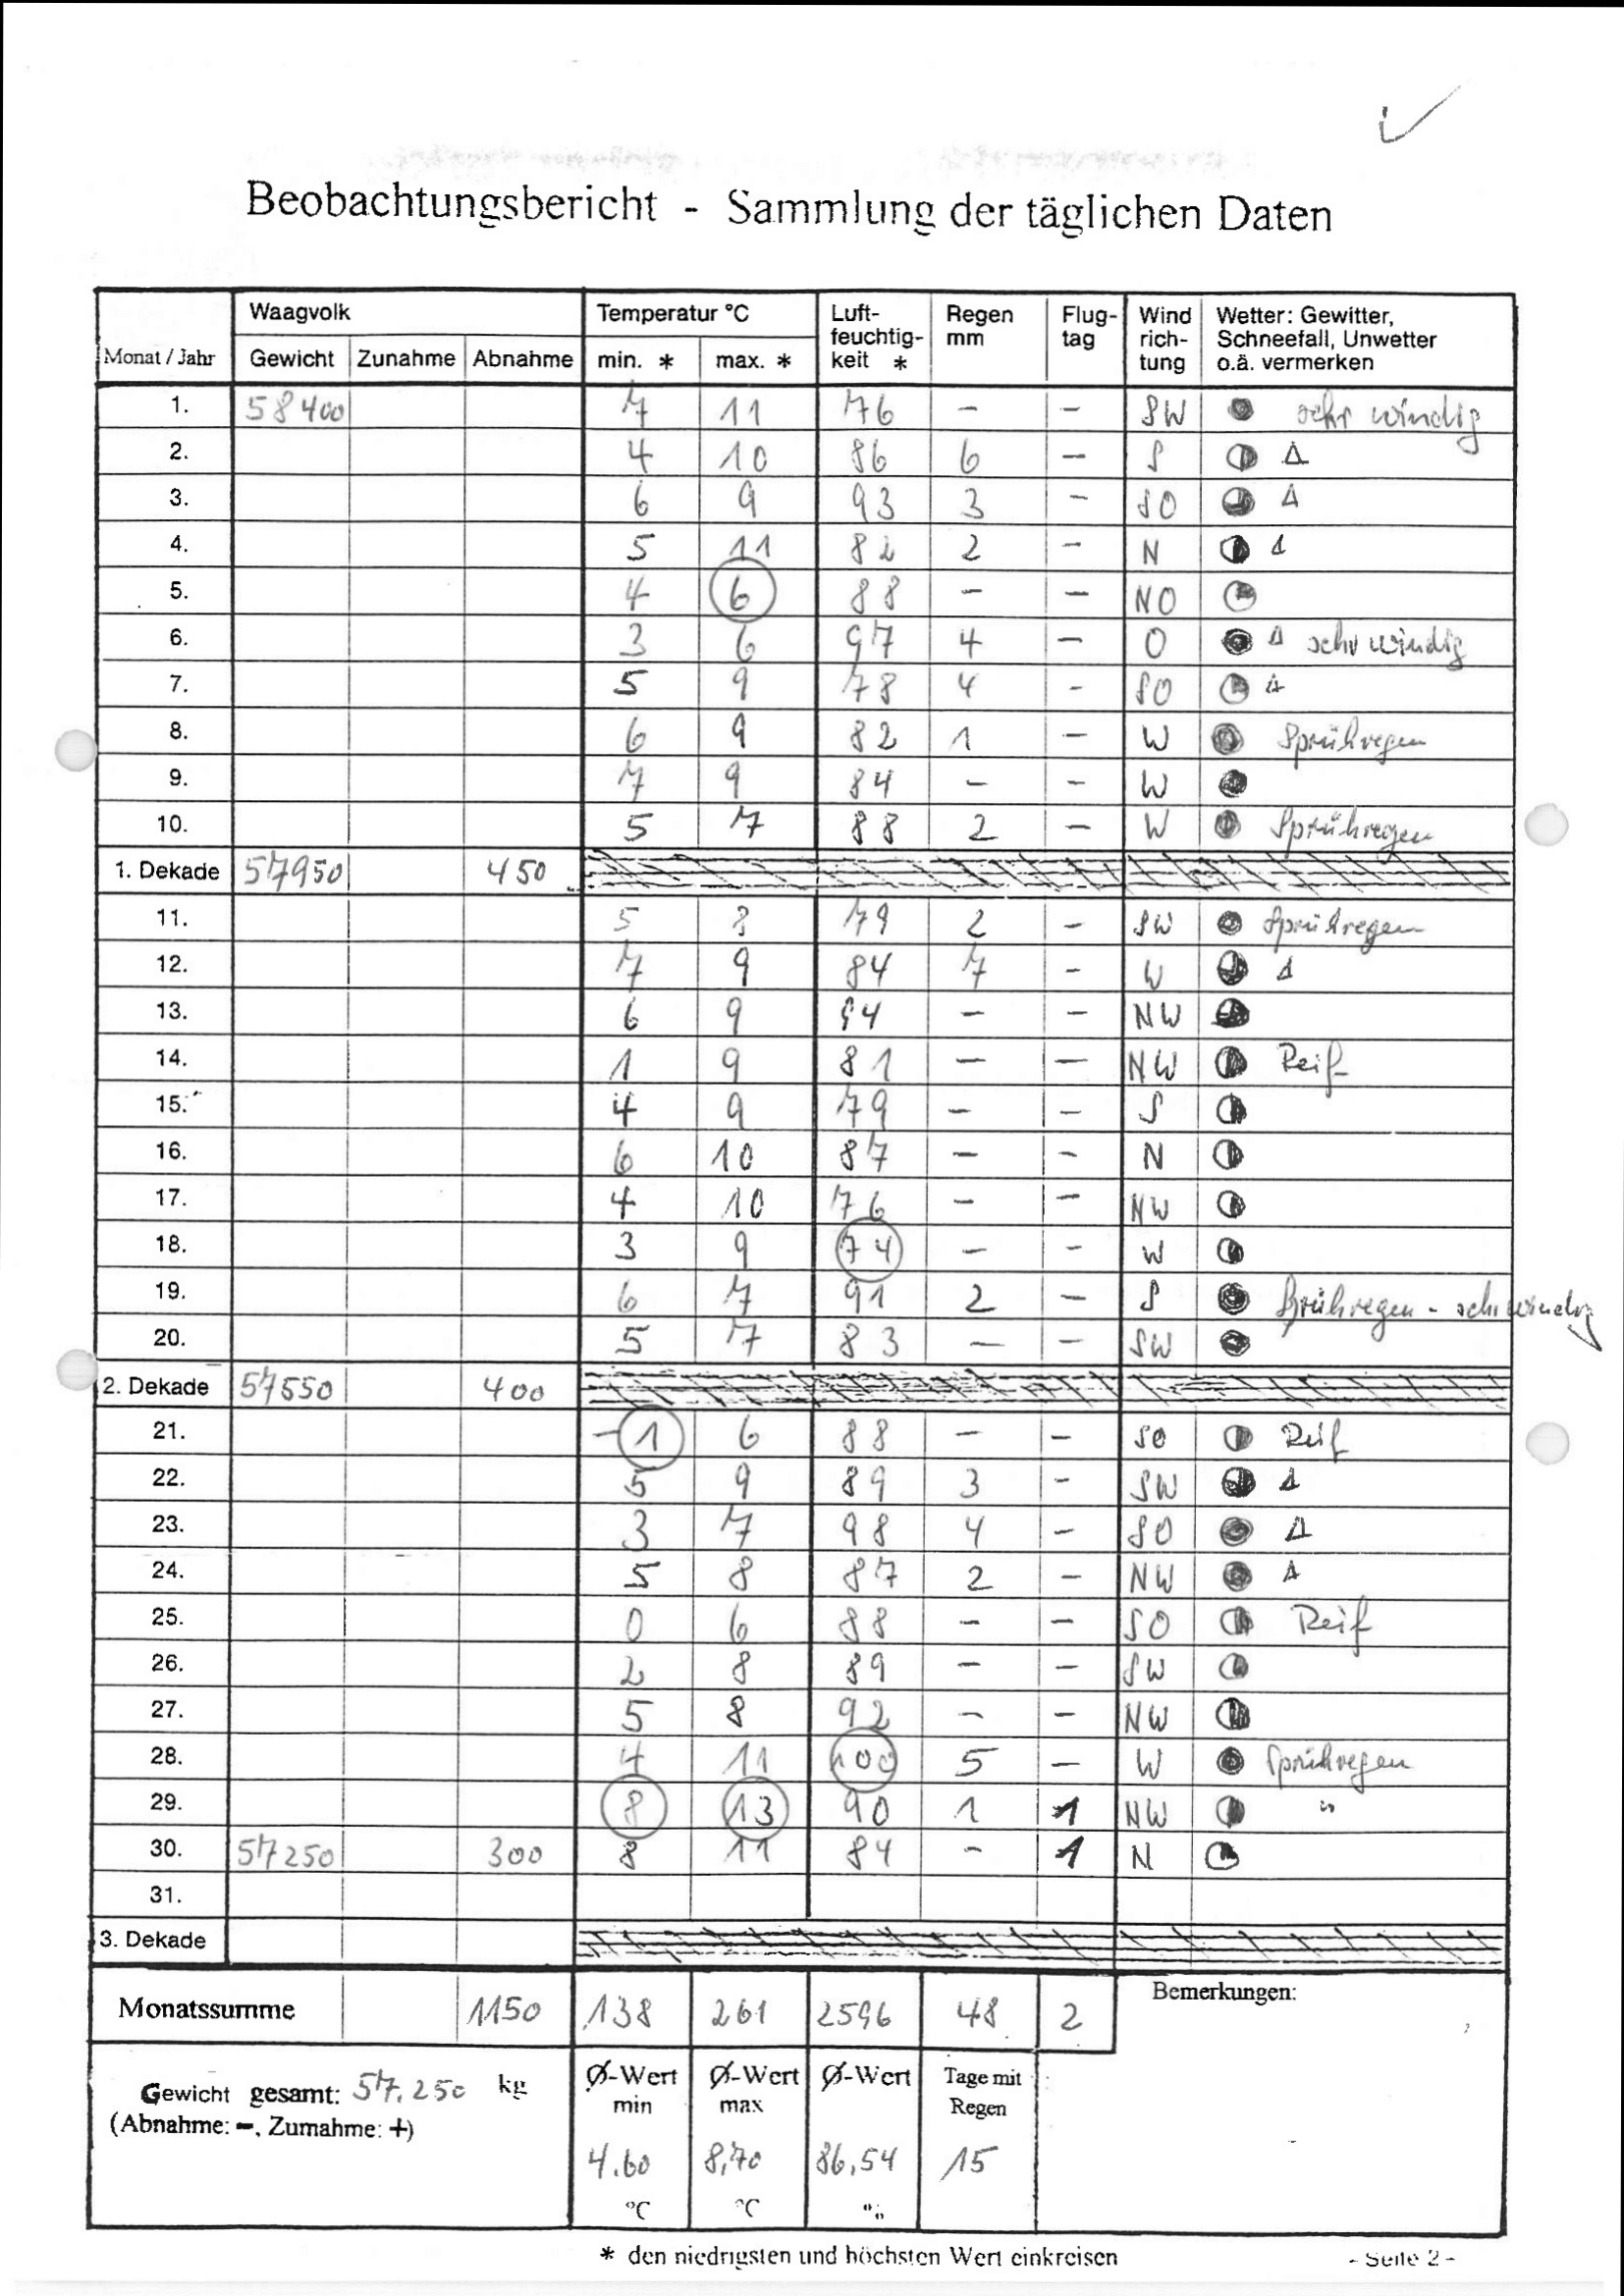 Beobachtungsbericht - Sammlung der täglichen Daten
Monat / Jahr Waagvolk Temperatur °C Luft-feuchtig-keit * Regen mm Flug-tag Wind rich-tung Wetter: Gewitter, Schneefall, Unwetter o.ä. vermerken
Gewicht Zunahme Abnahme min. * max. *
1. 58400 7 11 76 - - SW sehr windig
2. 4 10 86 6 - S Δ
3. 6 9 93 3 - SO Δ
4. 5 11 82 2 - N Δ
5. 4 6 88 - - NO
6. 3 6 97 4 - O Δ sehr windig
7. 5 9 78 4 - SO Δ
8. 6 9 82 1 - W Sprühregen
9. 7 9 84 - - W
10. 5 7 88 2 - W Sprühregen
1. Dekade 57950 450
11. 5 8 79 2 - SW Sprühregen
12. 7 9 84 7 - W Δ
13. 6 9 - - NW
14. 1 9 81 - - NW Reif
15. 4 9 79 - - S
16. 6 10 87 - - N
17. 4 10 76 - - NW
18. 3 9 74 - - W
19. 6 7 91 2 - S Sprühregen - sehr windig
20. 5 7 83 - - SW
2. Dekade 57550 400
21. -1 6 88 - - SO Reif
22. 5 9 89 3 - SW Δ
23. 3 7 98 4 - SO Δ
24. 5 8 87 2 - NW Δ
25. 0 6 88 - - SO Reif
26. 2 8 89 - - SW
27. 5 8 92 - - NW
28. 4 11 100 5 - W Sprühregen
29. 8 13 90 1 1 NW "
30. 57250 300 8 11 84 - 1 N
31.
3. Dekade
Monatssumme 1150 138 261 2596 48 2 Bemerkungen:
Gewicht gesamt: 57.250 kg
(Abnahme: -, Zumahme: +)
Ø-Wert min Ø-Wert max Ø-Wert Tage mit Regen
4.60 8,70 86,54 15
°C °C %
* den niedrigsten und höchsten Wert einkreisen
- Seite 2 -